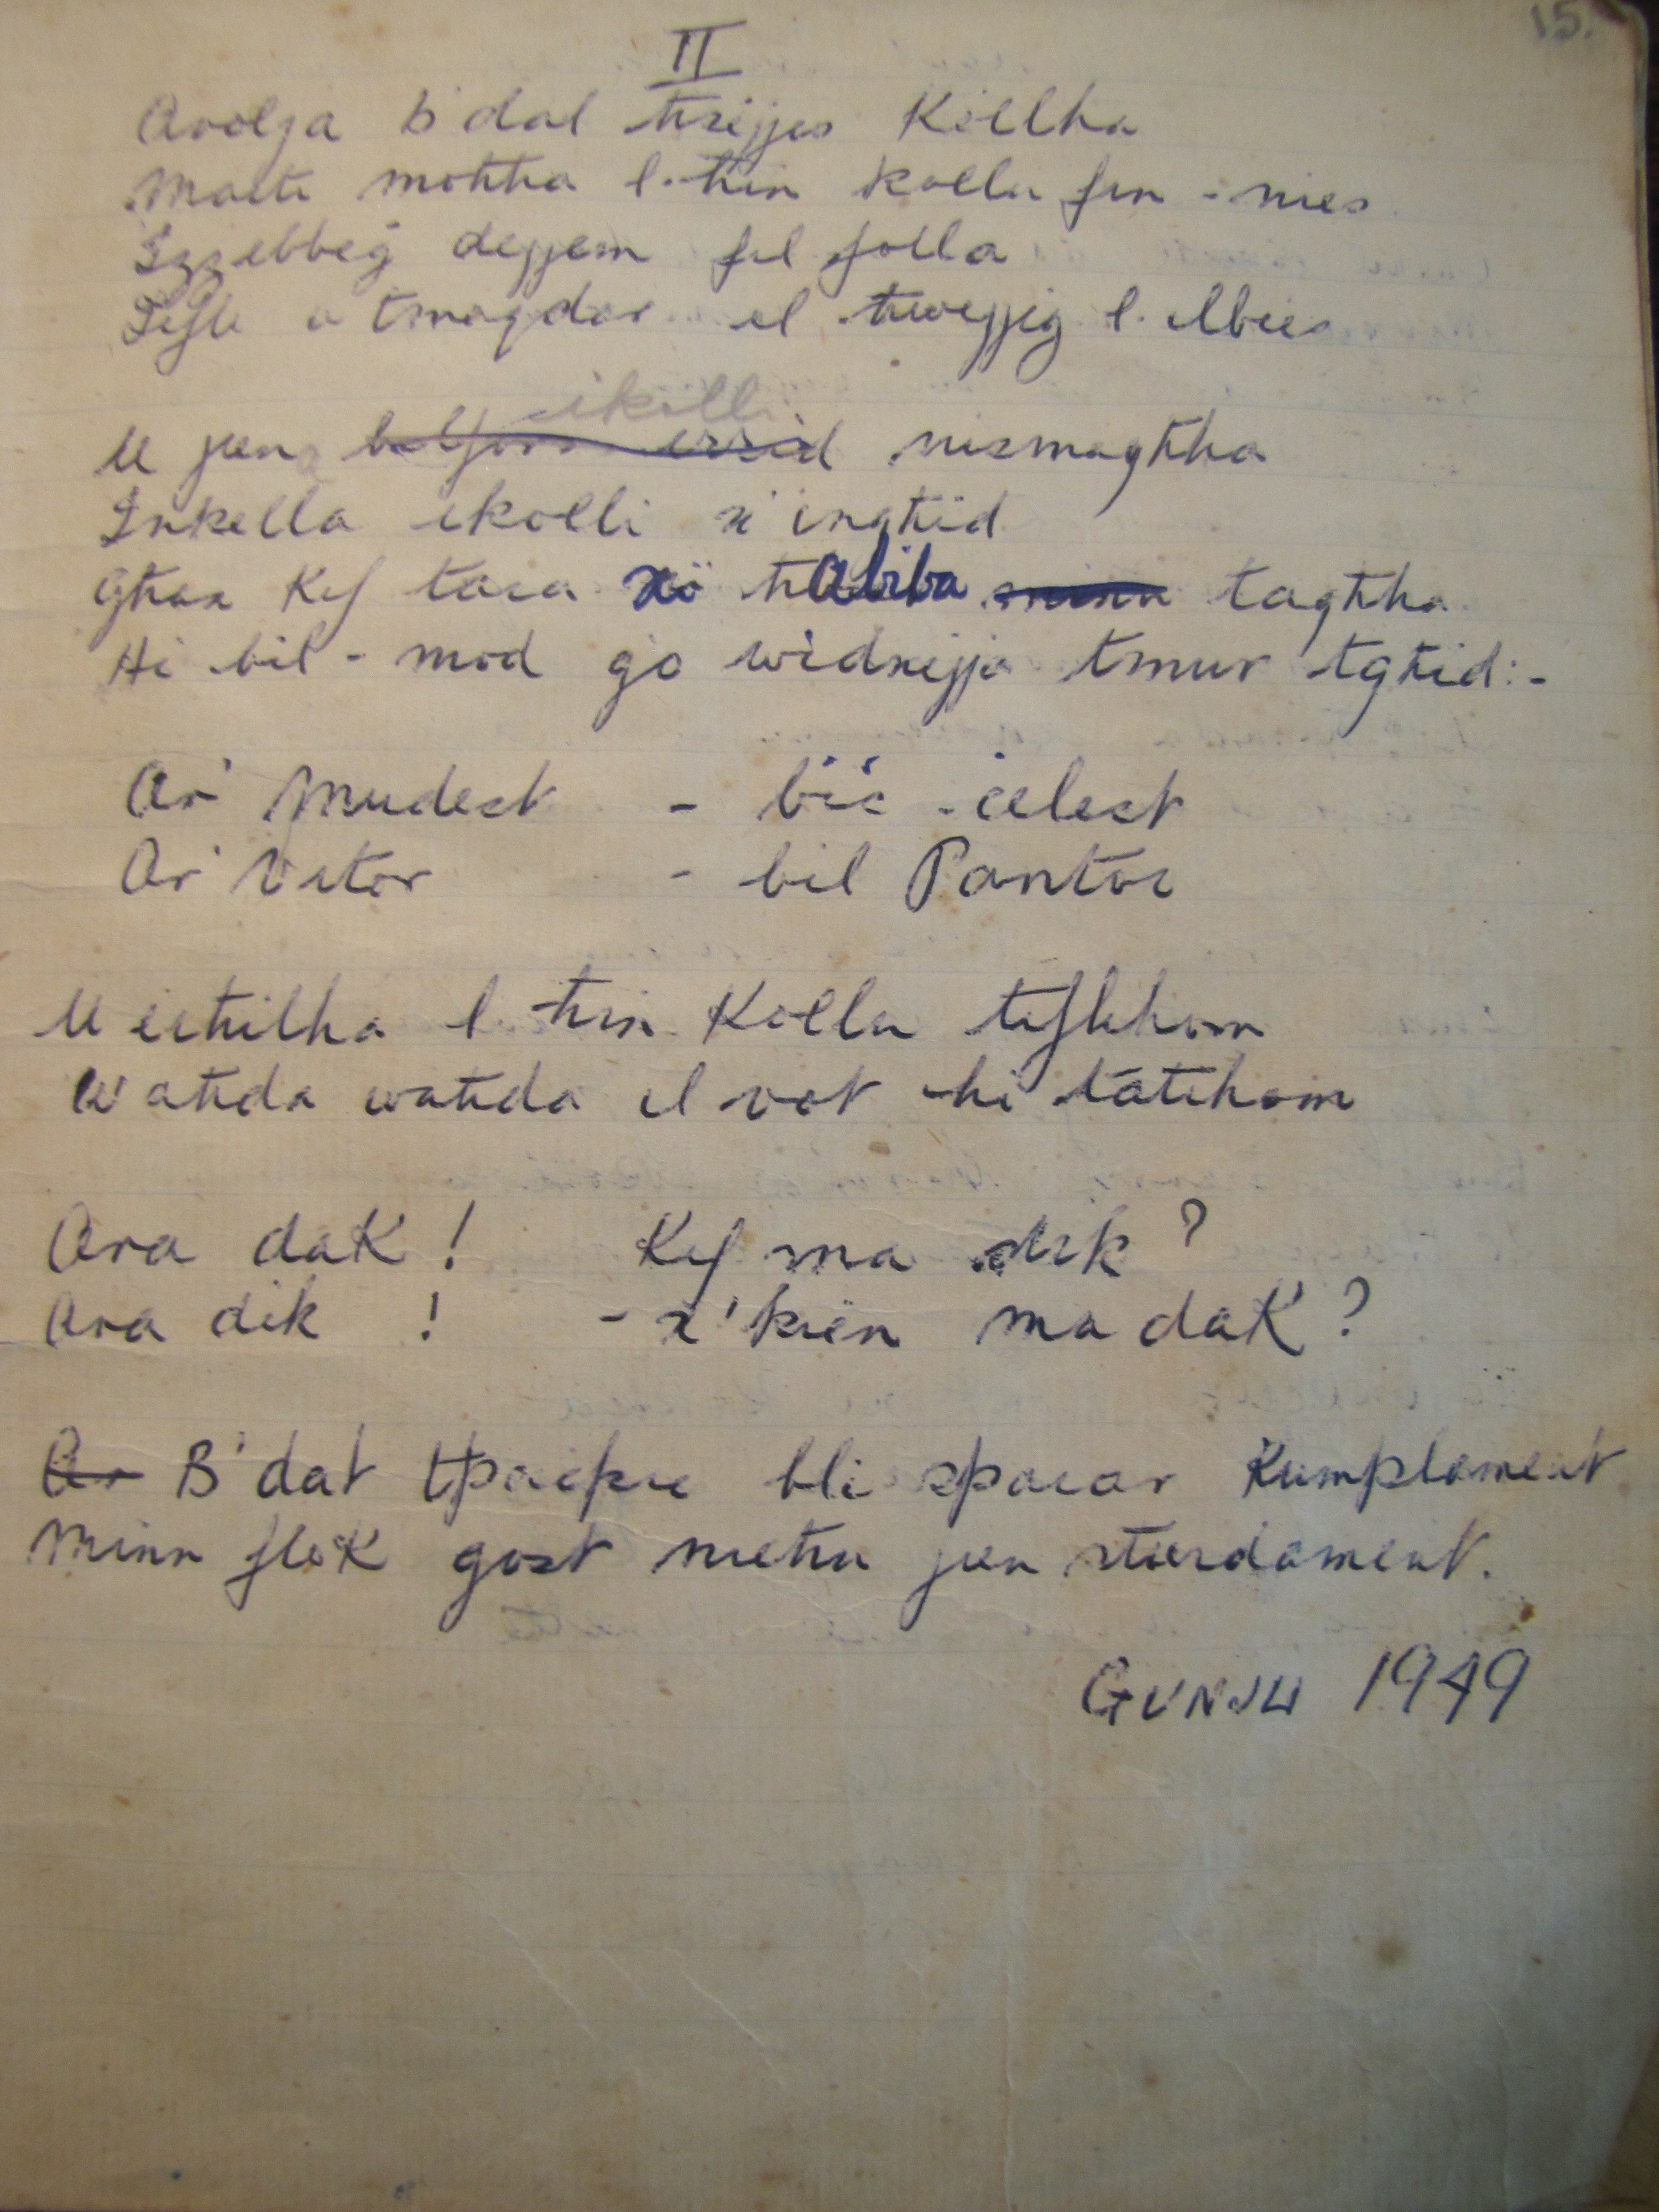 15.
II
Arolja b'dal ħsejjes Kollha
Matti moħħa l-ħin kollu fin-nies
Izzebbeġ dejjem fil folla
Tifli u tmaqdar il ħwejjeġ l-ilbies
ikolli
U jien nizmagħha
Inkella ikolli x'ingħid
Għax Kif tara xi ħabiba tagħha
Hi bil-mod ġo widnejja tmur tgħid:-
Ar' Mudest - biċ-ċelest
Ar' Vitor - bil Pantor
U istħilha l-ħin Kollu tiflihom
Waħda waħda il vot hi tàtihom
Ara dak! Kif ma dik?
Ara dik! - x'kien ma daK?
Ar B'dat tpaċpċe bli spaċar Kumplament
Minn flok gost nieħu jien sturdament.
GUNJU 1949